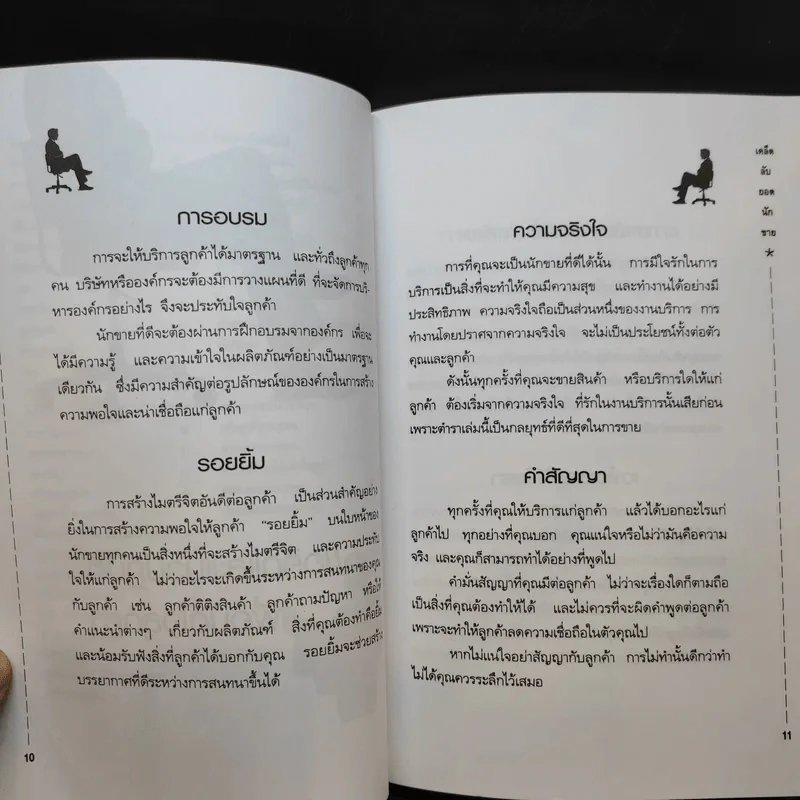 การอบรม
การจะให้บริการลูกค้าได้มาตรฐาน และทั่วถึงลูกค้าทุก
คน บริษัทหรือองค์กรจะต้องมีการวางแผนที่ดี ที่จะจัดการบริ-
หารองค์กรอย่างไร จึงจะประทับใจลูกค้า
นักขายที่ดีจะต้องผ่านการฝึกอบรมจากองค์กร เพื่อจะ
ได้มีความรู้ และความเข้าใจในผลิตภัณฑ์อย่างเป็นมาตรฐาน
เดียวกัน ซึ่งมีความสำคัญต่อรูปลักษณ์ขององค์กรในการสร้าง
ความพอใจและน่าเชื่อถือแก่ลูกค้า
รอยยิ้ม
การสร้างไมตรีจิตอันดีต่อลูกค้า เป็นส่วนสำคัญอย่าง
ยิ่งในการสร้างความพอใจให้ลูกค้า "รอยยิ้ม" บนใบหน้าของ
นักขายทุกคนเป็นสิ่งหนึ่งที่จะสร้างไมตรีจิต และความประทับ
ใจให้แก่ลูกค้า ไม่ว่าอะไรจะเกิดขึ้นระหว่างการสนทนาของคุณ
กับลูกค้า เช่น ลูกค้าติติงสินค้า ลูกค้าถามปัญหา หรือให้
คำแนะนำต่างๆ เกี่ยวกับผลิตภัณฑ์ สิ่งที่คุณต้องทำคือยิ้ม
และน้อมรับฟังสิ่งที่ลูกค้าได้บอกกับคุณ รอยยิ้มจะช่วยสร้าง
บรรยากาศที่ดีระหว่างการสนทนาขึ้นได้
10
เคล็ด
ลับ
ยอด
นัก
ขาย
*
ความจริงใจ
การที่คุณจะเป็นนักขายที่ดีได้นั้น การมีใจรักในการ
บริการเป็นสิ่งที่จะทำให้คุณมีความสุข และทำงานได้อย่างมี
ประสิทธิภาพ ความจริงใจถือเป็นส่วนหนึ่งของงานบริการ การ
ทำงานโดยปราศจากความจริงใจ จะไม่เป็นประโยชน์ทั้งต่อตัว
คุณและลูกค้า
ดังนั้นทุกครั้งที่คุณจะขายสินค้า หรือบริการใดให้แก่
ลูกค้า ต้องเริ่มจากความจริงใจ ที่รักในงานบริการนั้นเสียก่อน
เพราะตำราเล่มนี้เป็นกลยุทธ์ที่ดีที่สุดในการขาย
คำสัญญา
ทุกครั้งที่คุณให้บริการแก่ลูกค้า แล้วได้บอกอะไรแก่
ลูกค้าไป ทุกอย่างที่คุณบอก คุณแน่ใจหรือไม่ว่ามันคือความ
จริง และคุณก็สามารถทำได้อย่างที่พูดไป
คำมั่นสัญญาที่คุณมีต่อลูกค้า ไม่ว่าจะเรื่องใดก็ตามถือ
เป็นสิ่งที่คุณต้องทำให้ได้ และไม่ควรที่จะผิดคำพูดต่อลูกค้า
เพราะจะทำให้ลูกค้าลดความเชื่อถือในตัวคุณไป
หากไม่แน่ใจอย่าสัญญากับลูกค้า การไม่ทำนั้นดีกว่าทำ
ไม่ได้คุณควรระลึกไว้เสมอ
11